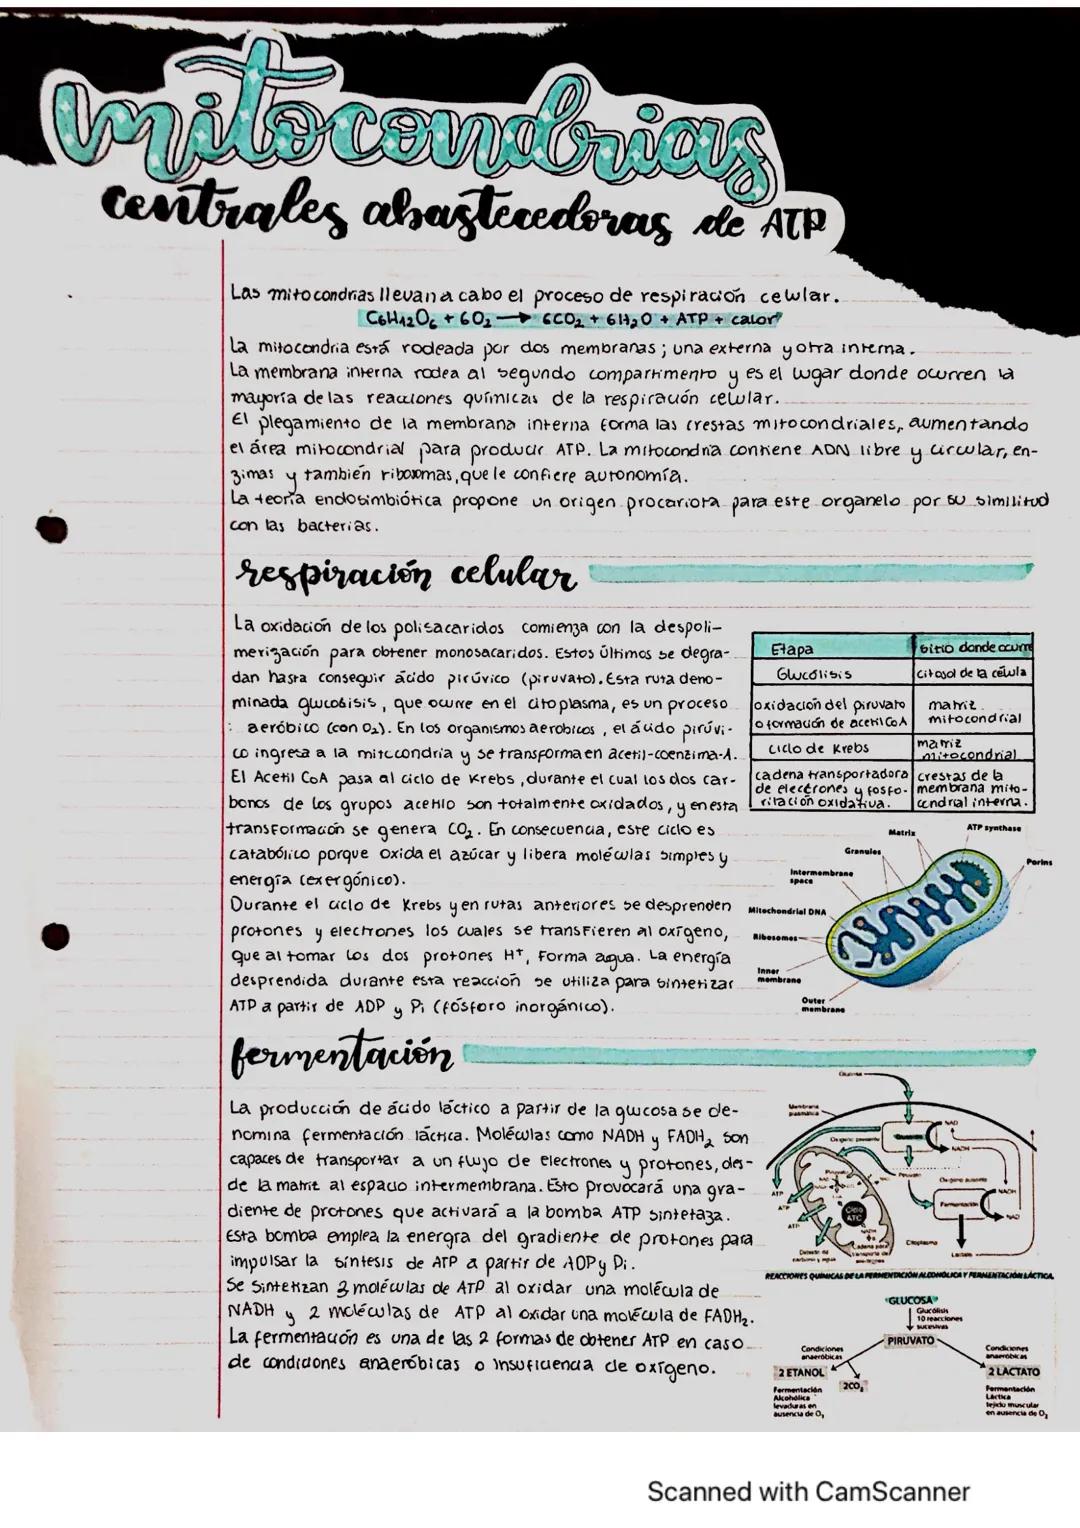 mitocondrias
centrales abastecedoras de ATP
Las mitocondrias llevan a cabo el proceso de respiración celular.
C6H12O6 + 6O2 → 6CO2 + 6H2O + ATP + calor
La mitocondria está rodeada por dos membranas; una externa y otra interna.
La membrana interna rodea al segundo compartimento y es el lugar donde ocurren la
mayoría de las reacciones químicas de la respiración celular.
El plegamiento de la membrana interna forma las crestas mitocondriales, aumentando
el área mitocondrial para producir ATP. La mitocondria contiene ADN libre y circular, en-
zimas y también ribosomas, que le confiere autonomía.
La teoría endosimbiótica propone un origen procariota para este organelo por su similitud
con las bacterias.
respiración celular
La oxidación de los polisacaridos comienza con la despoli-
merización para obtener monosacaridos. Estos últimos se degra-
dan hasta conseguir ácido pirúvico (piruvato). Esta ruta deno-
minada glucósisis, que ocurre en el citoplasma, es un proceso
aeróbico (con O2). En los organismos aerobicos, el ácido pirúvi-
co ingresa a la mitocondria y se transforma en acetil-coenzima-A.
El Acetil CoA pasa al ciclo de Krebs, durante el cual los dos car-
bonos de los grupos acetilo son totalmente oxidados, y en esta
transformación se genera CO2. En consecuencia, este ciclo es
catabólico porque oxida el azúcar y libera moléculas simples y
energía (exergónico).
Durante el ciclo de Krebs y en rutas anteriores se desprenden
protones y electrones los cuales se transfieren al oxígeno,
que al tomar los dos protones H+, forma agua. La energía
desprendida durante esta reacción se utiliza para sintetizar
ATP a partir de ADP y Pi (fósforo inorgánico).
Etapa sitio donde ocurre
Glucólisis citosol de la célula
oxidación del piruvato matriz
o formación de acetil CoA mitocondrial
ciclo de Krebs matriz
mitocondrial
cadena transportadora crestas de la
de electrones y fosfo- membrana mito-
rilación oxidativa. condrial interna.
Matrix
ATP synthase
Granules
Porins
Intermembrane
space
Mitochondrial DNA
Ribosomes
Inner
membrane
Outer
membrane
fermentación
La producción de ácido láctico a partir de la glucosa se de-
nomina fermentación láctica. Moléculas como NADH y FADH2 son
capaces de transportar a un flujo de electrones y protones, des-
de la matriz al espacio intermembrana. Esto provocará una gra-
diente de protones que activará a la bomba ATP sintetaza.
Esta bomba emplea la energía del gradiente de protones para
impulsar la síntesis de ATP a partir de ADP y Pi.
Se sintetizan 3 moléculas de ATP al oxidar una molécula de
NADH y 2 moléculas de ATP al oxidar una molécula de FADH2.
La fermentación es una de las 2 formas de obtener ATP en caso
de condiciones anaeróbicas o insuficiencia de oxígeno.
Glucosa
Membrana
plasmática
NAD
Oxígeno presente
NADH
Piruvato
Oxígeno ausente
NADH
ATP
Fermentación
ATP
Ciclo
ATC
NAD
ATP
Citoplasma
Lactato
REACCIONES QUIMICAS DE LA FERMENTACIÓN ALCOHÓLICA Y FERMENTACIÓN LÁCTICA
GLUCOSA
Glucólisis
10 reacciones
sucesivas
PIRUVATO
Condiciones
anaeróbicas
Condiciones
anaeróbicas
2 ETANOL
2CO2
2 LACTATO
Fermentación
Alcohólica
levaduras en
ausencia de O2
Fermentación
Láctica
tejido muscular
en ausencia de O2
Scanned with CamScanner